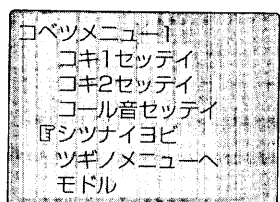 コベツメニュー1
コキ1セッテイ
コキ2セッテイ
コール音セッテイ
☞シツナイヨビ
ツギノメニューへ
モドル